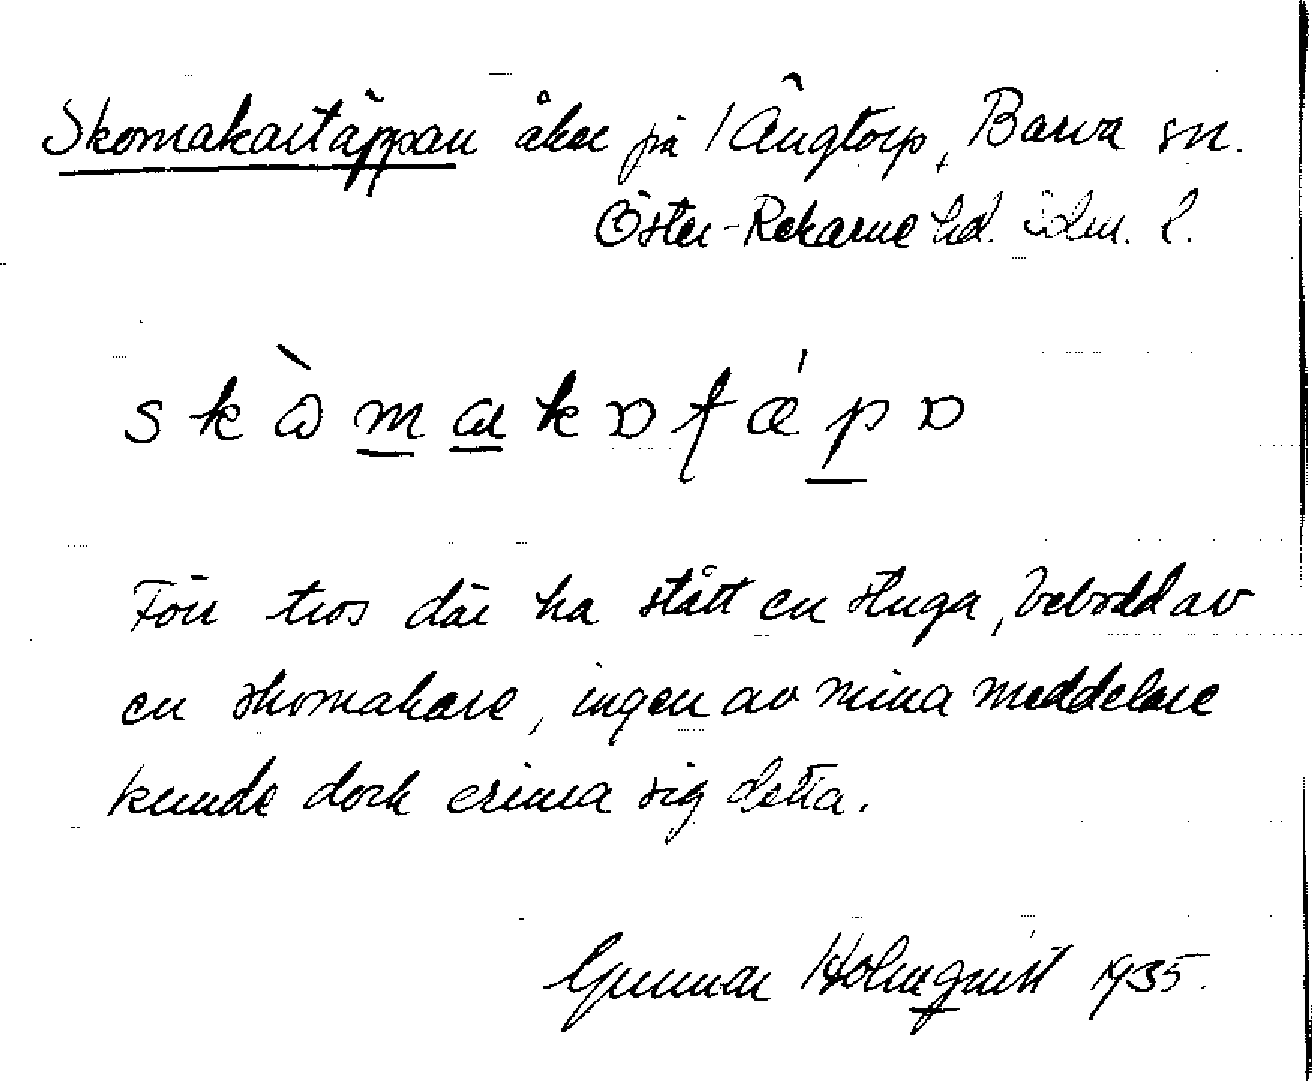 Skomakartäppan åker på Ängtorp, Barva sn.
Öster-Rekarne hd. Södm. l.
skòmakɒtǽpɒ
Förr tros där ha stått en stuga, bebodd av
en skomakare, ingen av mina meddelare
kunde dock erinra sig detta.
Gunnar Holmquist 1935.